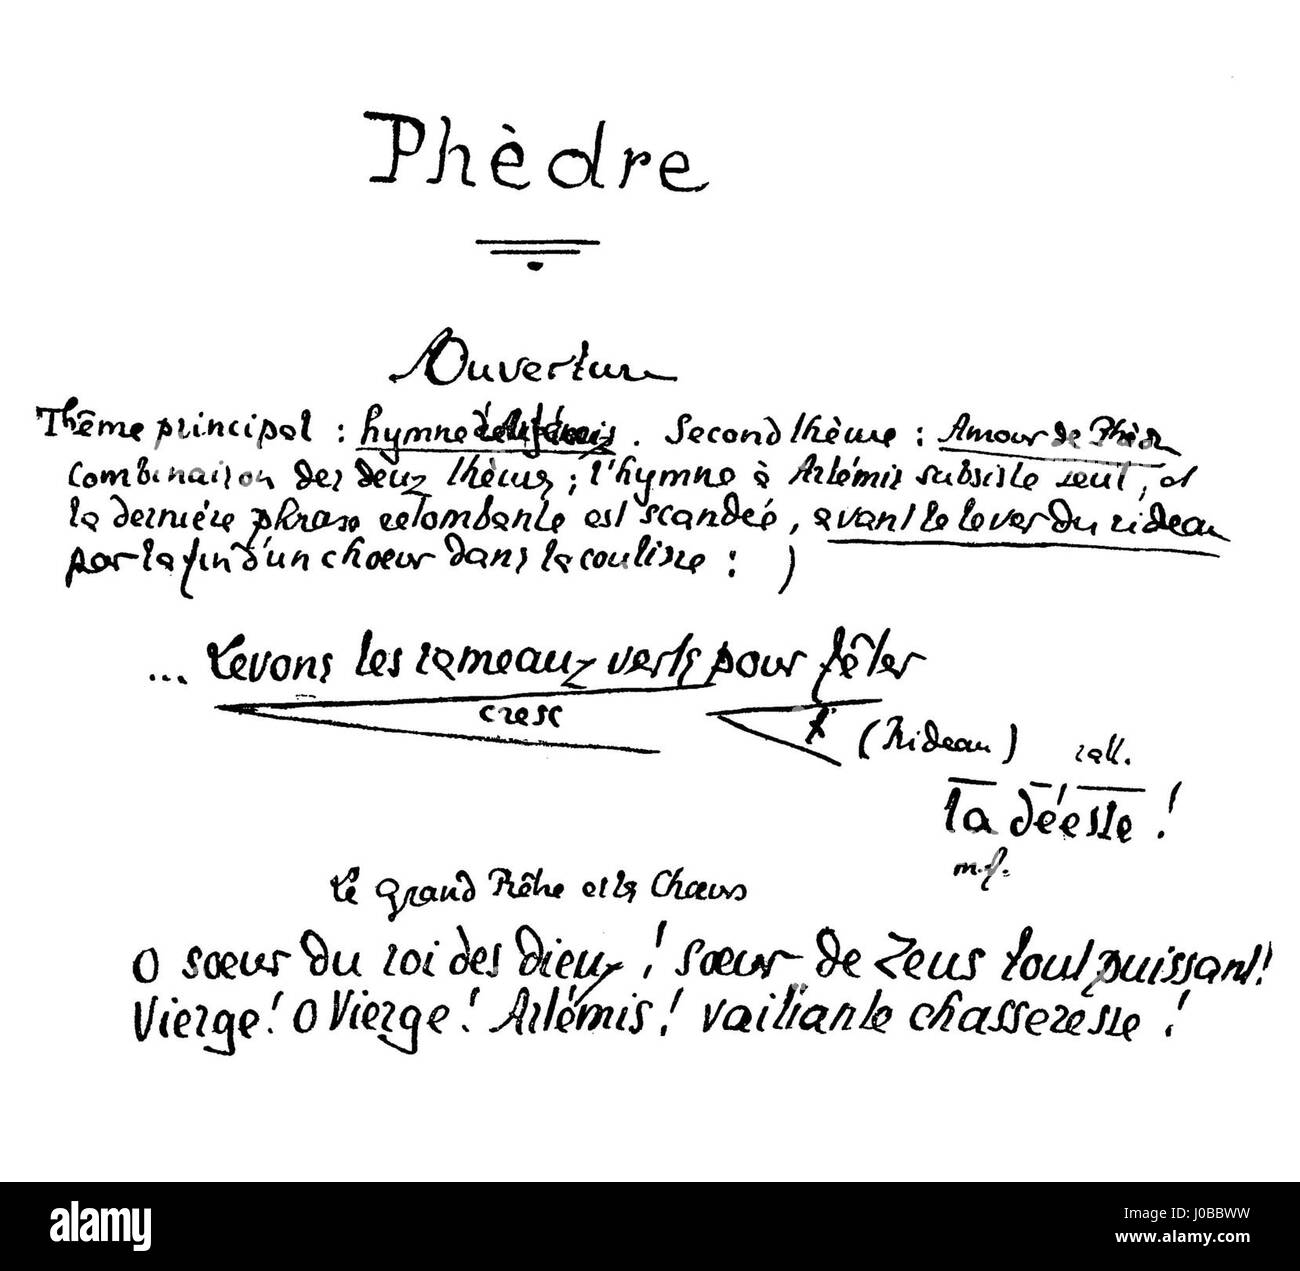 Phèdre
Ouverture
Thème principal : hymne . Second thème : Amour de Phèdre
Combinaison des deux thèmes ; l'hymne à Artémis subsiste seul, et
la dernière phrase retombante est scandée, avant le lever du rideau
par la fin d'un chœur dans la coulisse : )
... Levons les rameaux verts pour fêter
cresc
f (Rideau) rall.
la déesse !
m.f.
Le Grand Prêtre et le Chœur
O sœur du roi des dieux ! sœur de Zeus tout puissant !
Vierge ! O Vierge ! Artémis ! vaillante chasseresse !
alamy
alamy stock photo
J0BBWW
www.alamy.com